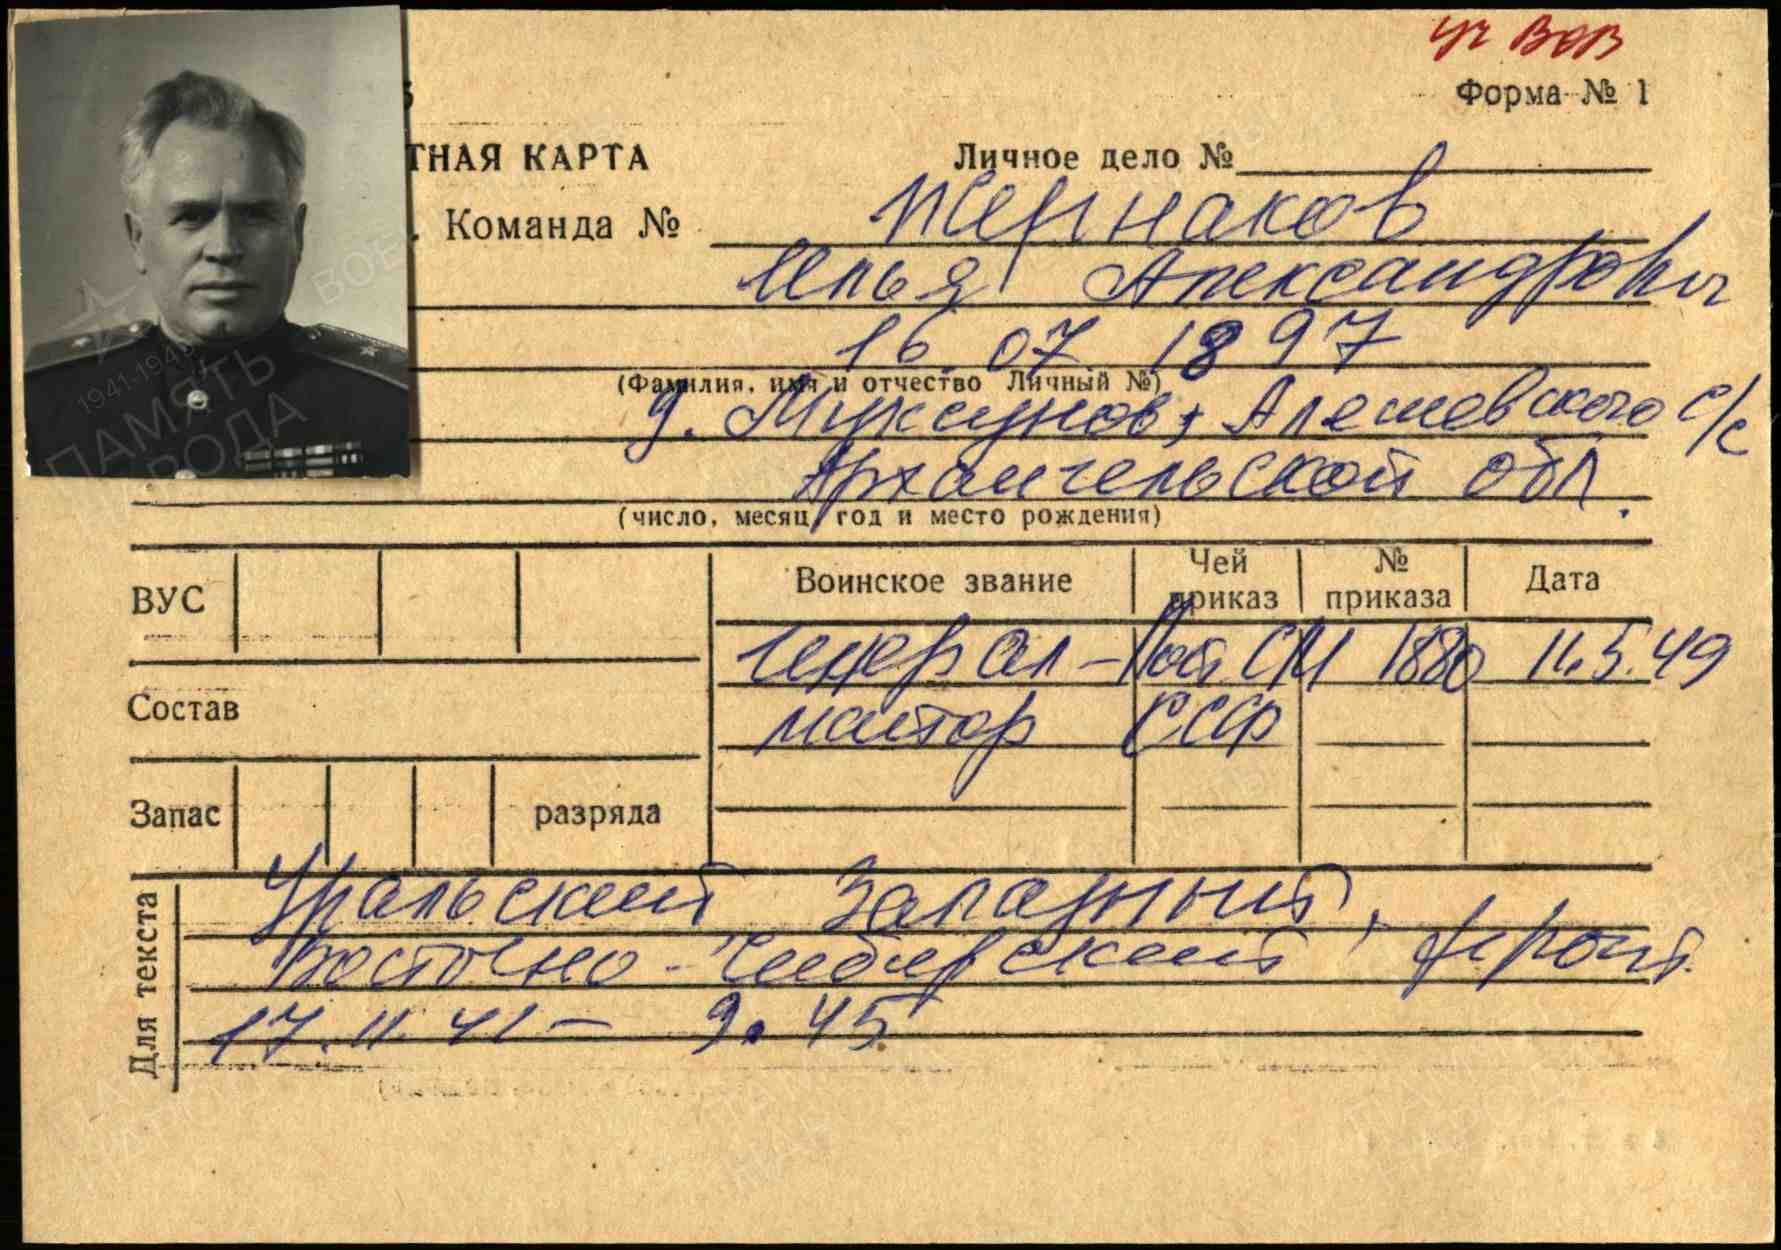 уч ВОВ
Форма № 1
ТНАЯ КАРТА
Личное дело №
Команда № Жернаков
Илья Александрович
16.07 1897
(Фамилия, имя и отчество Личный №)
д. Муксунов, Алешевского с/с
Архангельской обл.
(число, месяц, год и место рождения)
ВУС
Воинское звание
Чей приказ
№ приказа
Дата
Генерал- Пост СМ 1880 11.5.49
майор СССР
Состав
Запас
разряда
Для текста
Уральский Западный,
Восточно-Сибирский фронт
17.11.41 - 9.45
ПАМЯТЬ
НАРОДА
1941-1945